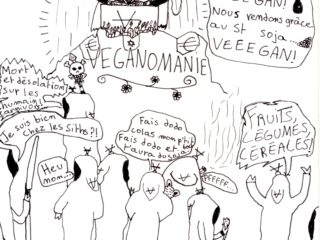 VEGAN!
Nous rendons grâce
au st soja...
VEEEGAN!
VEGANOMANIE
Mort
et désolation
sur les
humains
Je suis bien
chez les siths?!
Heu
mon...
Fais dodo
colas mon p'tit
Fais dodo et
t'aura du soja
FFFFF...
FRUITS,
LÉGUMES,
CÉRÉALES!